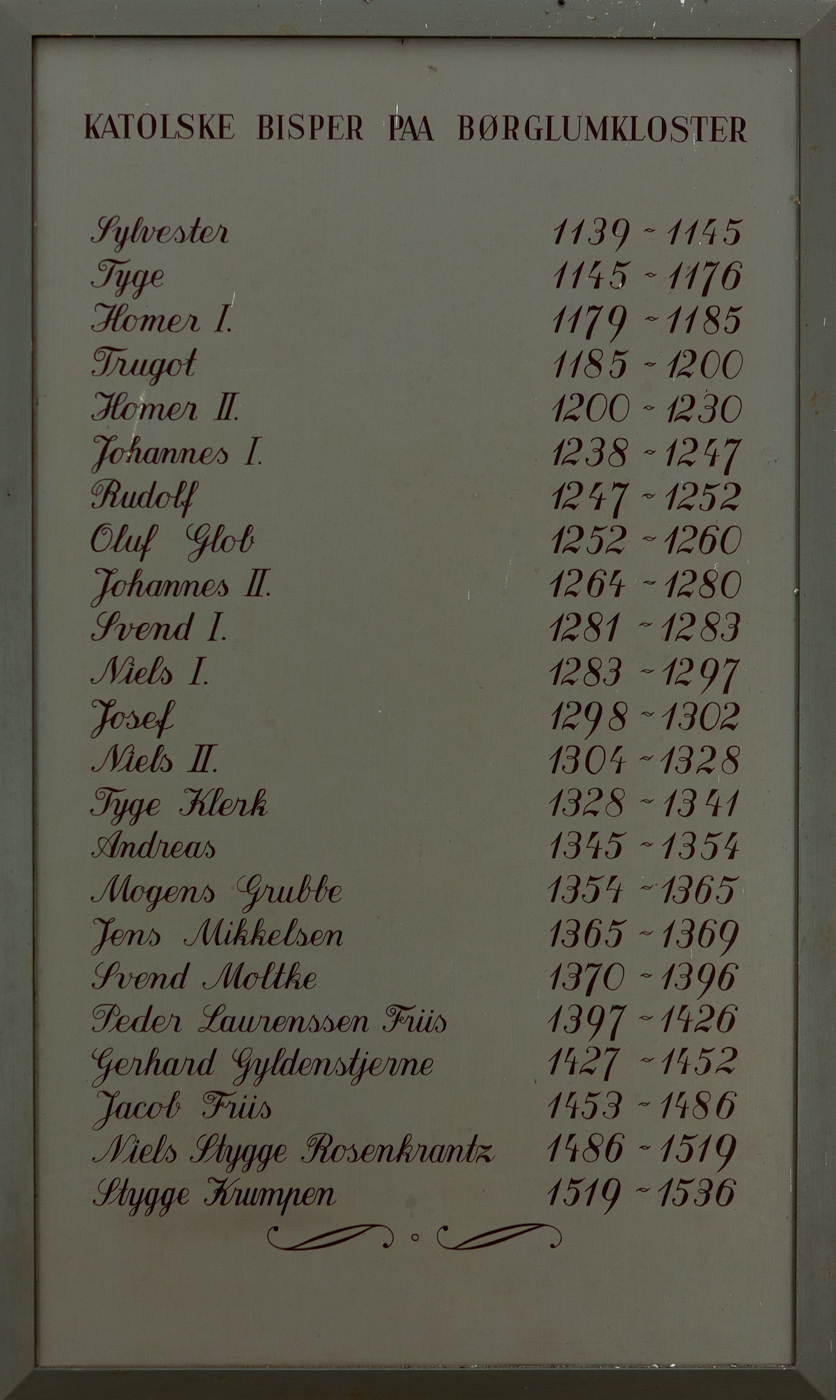 KATOLSKE BISPER PAA BØRGLUMKLOSTER
Sylvester 1139 ~ 1145
Tyge 1145 ~ 1176
Homer I. 1179 ~ 1185
Trugot 1185 ~ 1200
Homer II. 1200 ~ 1230
Johannes I. 1238 ~ 1247
Rudolf 1247 ~ 1252
Oluf Glob 1252 ~ 1260
Johannes II. 1264 ~ 1280
Svend I. 1281 ~ 1283
Niels I. 1283 ~ 1297
Josef 1298 ~ 1302
Niels II. 1304 ~ 1328
Tyge Klerk 1328 ~ 1341
Andreas 1345 ~ 1354
Mogens Grubbe 1354 ~ 1365
Jens Mikkelsen 1365 ~ 1369
Svend Moltke 1370 ~ 1396
Peder Laurenssen Friis 1397 ~ 1426
Gerhard Gyldenstjerne 1427 ~ 1452
Jacob Friis 1453 ~ 1486
Niels Stygge Rosenkrantz 1486 ~ 1519
Stygge Krumpen 1519 ~ 1536